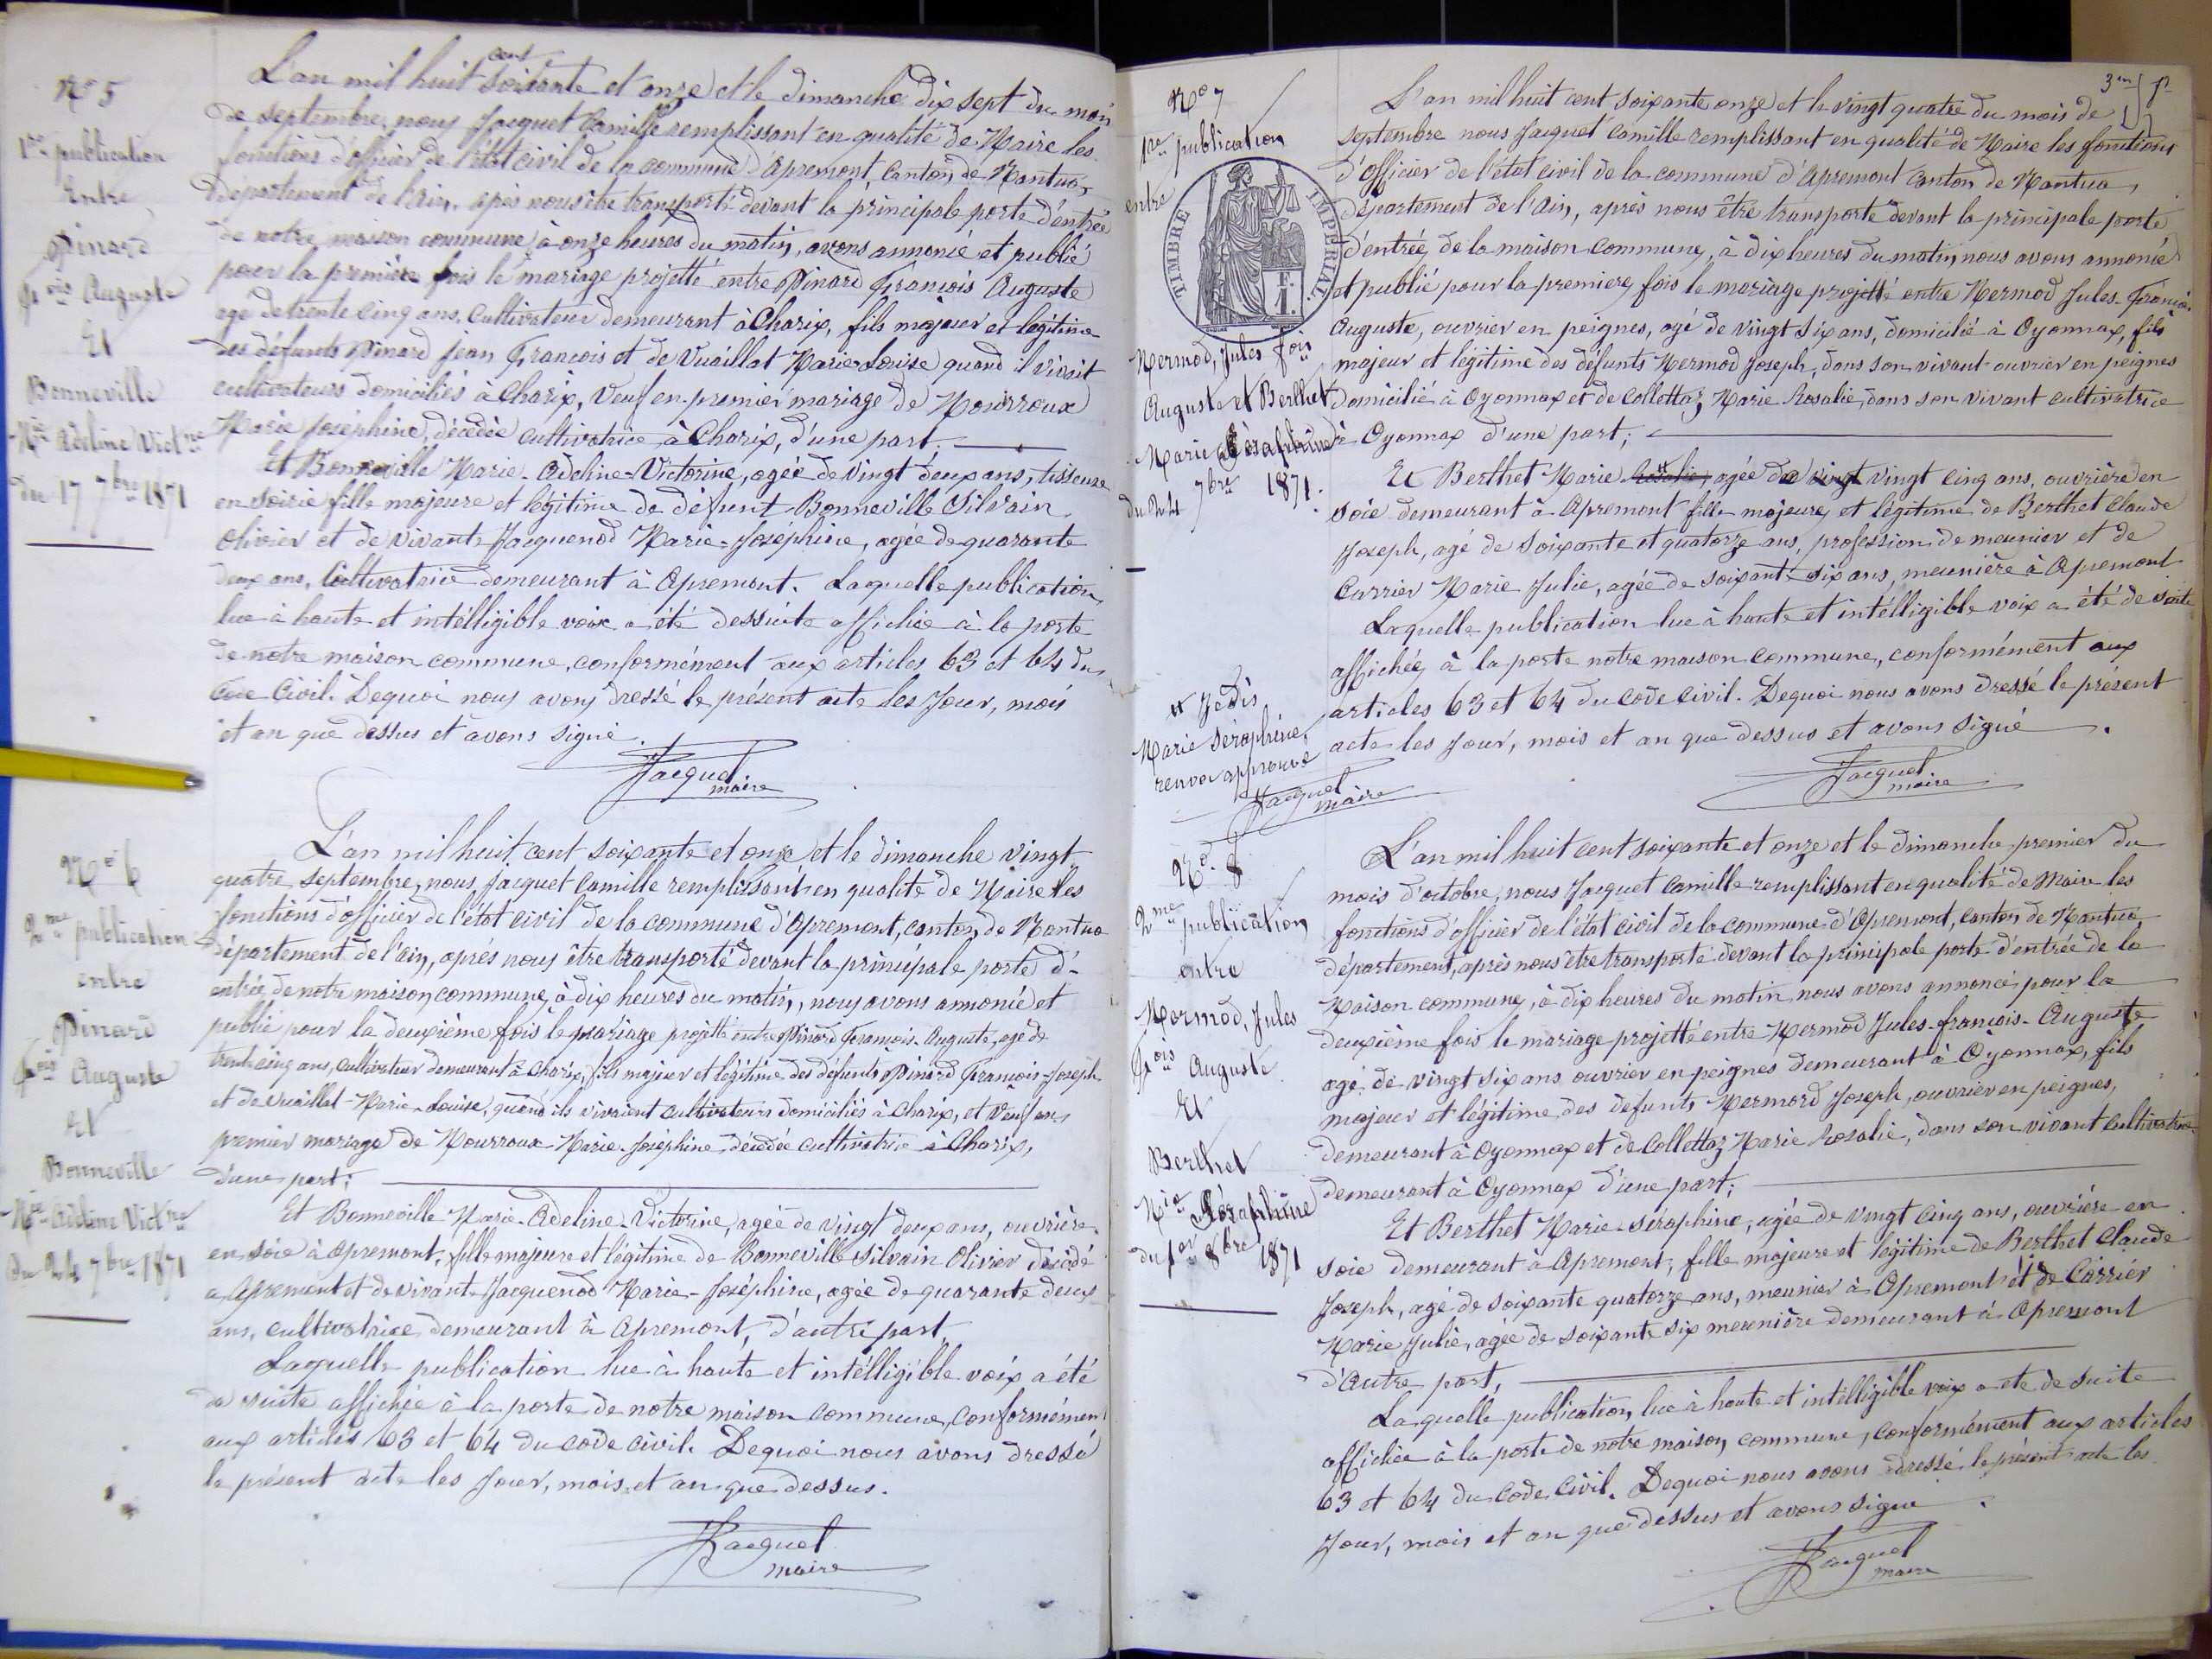 N° 5
1re publication
Entre
Pinard
Fçois Auguste
Et
Bonneville
Mie Adeline Victne
du 17 7bre 1871
L'an mil huit cent soixante et onze et le dimanche dix sept du mois
de septembre, nous Jacquet Camille remplissant en qualité de Maire les
fonctions d'officier de l'état civil de la commune d'Apremont, Canton de Nantua,
Département de l'ain, après nous être transporté devant la principale porte d'entrée
de notre maison commune, à onze heures du matin, avons annoncé et publié
pour la première fois le mariage projetté entre Pinard François Auguste
agé de trente cinq ans, Cultivateur demeurant à Charix, fils majeur et légitime
des défunts Pinard Jean François et de Vuaillat Marie Louise quand il vivait
cultivateurs domiciliés à Charix, Veuf en premier mariage de Mourroux
Marie Joséphine, décédée cultivatrice à Charix, d'une part.
Et Bonneville Marie-Adeline-Victorine, agée de vingt deux ans, tisseuse
en soirie fille majeure et légitime de défunt Bonneville Silvain
Olivier et de vivante Jacquenod Marie-Joséphine, agée de quarante
deux ans, Cultivatrice demeurant à Apremont. Laquelle publication
lue à haute et intélligible voix a été dessuite affichée à la porte
de notre maison commune, conformément aux articles 63 et 64 du
Code Civil. Dequoi nous avons dressé le présent acte les Jour, mois
et an que dessus et avons signé.
Jacquet
maire
N° 6
2me publication
entre
Pinard
Fçois Auguste
Et
Bonneville
Mie Adeline Victne
Du 24 7bre 1871
L'an mil huit cent soixante et onze et le dimanche vingt
quatre septembre, nous Jacquet Camille remplissant en qualité de Maire les
fonctions d'officier de l'état civil de la commune d'Apremont, canton de Nantua
département de l'ain, après nous être transporté devant la principale porte d'-
entrée de notre maison commune, à dix heures du matin, nous avons annoncé et
publié pour la deuxième fois le mariage projetté entre Pinard François-Auguste, agé de
trente cinq ans, cultivateur demeurant à Charix, fils majeur et légitime des défunts Pinard François-Joseph
et de Vuaillat-Marie-Louise, quand ils vivraient cultivateurs domiciliés à Charix, et Veuf en
premier mariage de Mourroux Marie-Joséphine décédée cultivatrice à Charix,
d'une part;
Et Bonneville Marie-Adeline-Victorine, agée de vingt deux ans, ouvrière
en soie à Apremont, fille majeure et légitime de Bonneville Silvain Olivier décédé
à Apremont et de vivante Jacquenod Marie-Joséphine, agée de quarante deux
ans, cultivatrice demeurant à Apremont, d'autre part.
Laquelle publication lue à haute et intélligible voix a été
de suite affichée à la porte de notre maison commune, conformément
aux articles 63 et 64 du code civil. Dequoi nous avons dressé
le présent acte les Jour, mois et an que dessus.
Jacquet
maire
3me f
N° 7
1re publication
entre
TIMBRE IMPERIAL
1 F.
Mermod, Jules fois
Auguste et Berthet
Marie Séraphine
du 24 7bre 1871.
L'an mil huit cent soixante onze et le vingt quatre du mois de
septembre nous Jacquet Camille remplissant en qualité de Maire les fonctions
d'officier de l'état civil de la commune d'Apremont Canton de Nantua,
Département de l'Ain, après nous être transporté devant la principale porte
d'entrée de la maison commune, à dix heures du matin, nous avons annoncé
et publié pour la premiere fois le mariage projetté entre Mermod Jules-François
Auguste, ouvrier en peignes, agé de vingt six ans, domicilié à Oyonnax, fils
majeur et légitime des défunts Mermod Joseph, dans son vivant ouvrier en peignes
Domicilié à Oyonnax et de Collettaz Marie Rosalie, dans son vivant cultivatrice
à Oyonnax d'une part;
Et Berthet Marie Rosalie, agée de vingt vingt cinq ans, ouvrière en
soie demeurant à Apremont fille majeure et légitime de Berthet Claude
Joseph, agé de soixante et quatorze ans, profession de meunier et de
Carrier Marie Julie, agée de soixante six ans, meunière à Apremont
Laquelle publication lue à haute et intélligible voix a été de suite
affichée à la porte notre maison commune, conformément aux
articles 63 et 64 du Code civil. Dequoi nous avons dressé le présent
acte les Jour, mois et an que dessus et avons signé.
Jacquet
maire
# Je dis
Marie Séraphine,
renvoi approuvé
Jacquet
maire
N° 8
2me publication
entre
Mermod, Jules
Fçois Auguste
Et
Berthet
Mie Séraphine
du 1er 8bre 1871
L'an mil huit cent soixante et onze et le dimanche premier du
mois d'octobre, nous Jacquet Camille remplissant en qualité de Maire les
fonctions d'officier de l'état civil de la commune d'Apremont, canton de Nantua
département, après nous être transporté devant la principale porte d'entrée de la
Maison commune, à dix heures du matin nous avons annoncé pour la
deuxième fois le mariage projetté entre Mermod Jules-françois-Auguste
agé de vingt six ans ouvrier en peignes demeurant à Oyonnax, fils
majeur et légitime des defunts Mermord Joseph, ouvrier en peignes,
demeurant à Oyonnax et de Collettaz Marie Rosalie, dans son vivant cultivatrice
demeurant à Oyonnax d'une part;
Et Berthet Marie-Séraphine, agée de vingt cinq ans, ouvrière en
soie demeurant à Apremont, fille majeure et légitime de Berthet Claude
Joseph, agé de soixante quatorze ans, meunier à Apremont et de Carrier
Marie Julie, agée de soixante six meunière demeurant à Apremont
d'Autre part,
Laquelle publication, lue à haute et intélligible voix a été de suite
affichée à la porte de notre maison, commune, conformément aux articles
63 et 64 du code civil. Dequoi nous avons dressé le présent acte les
Jour, mois et an que dessus et avons signé.
Jacquet
maire